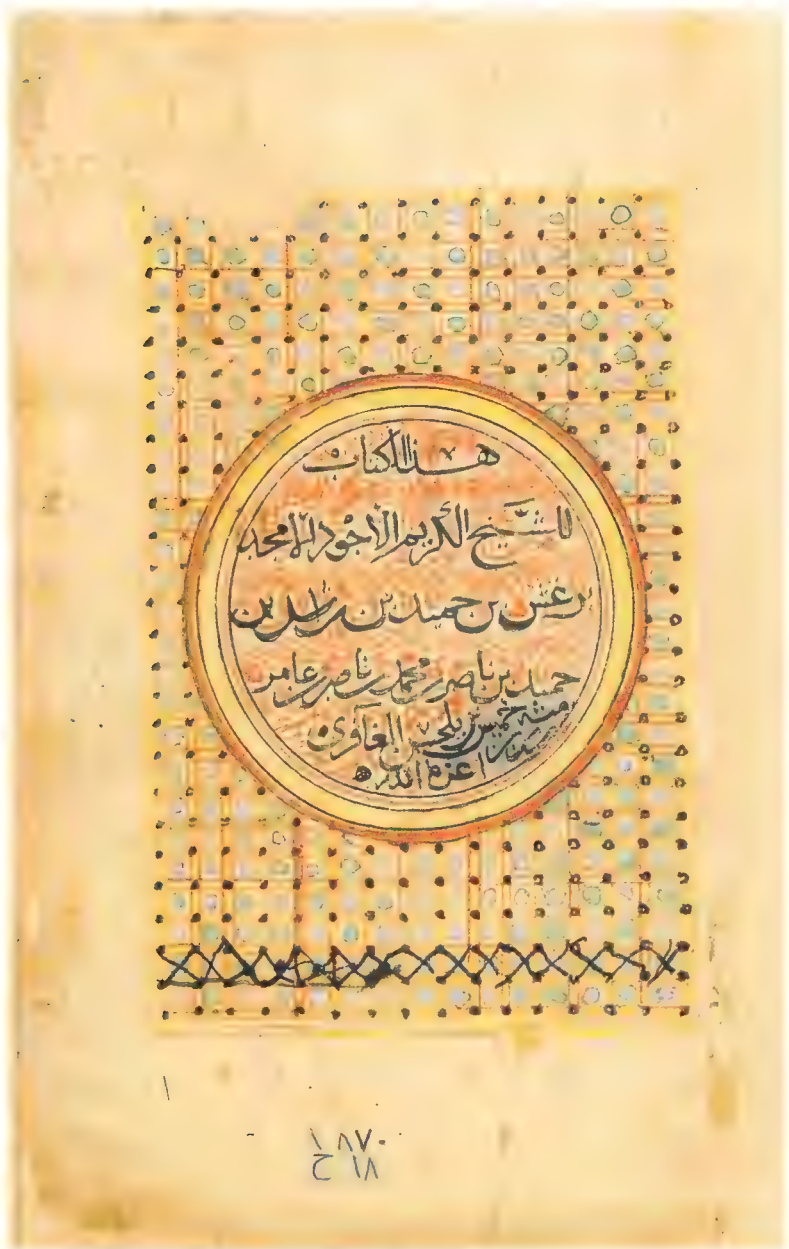 هذا الكتاب
للشيخ الكريم الاجود الامجد
بن حميد بن راشد بن
حميد بن ناصر بن محمد بن ناصر بن عامر
خميس بن
اعزه الله
١
١٨٧٠
١٨ ح